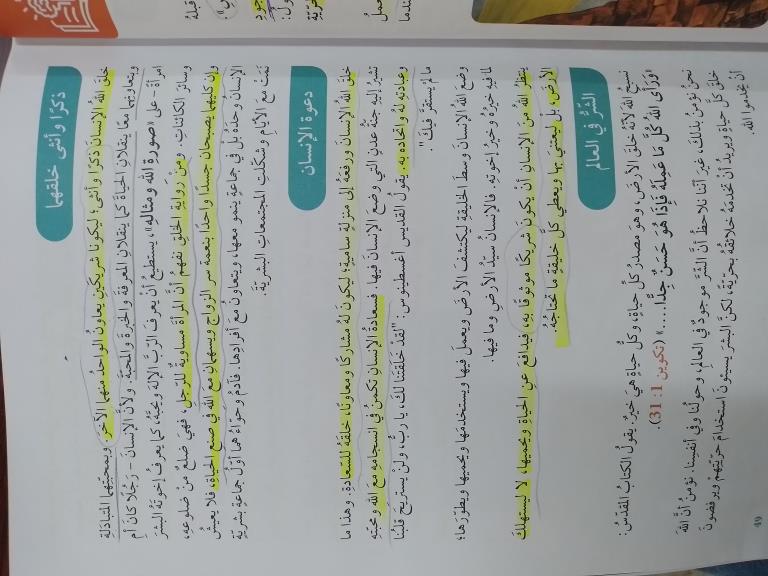 ذكرًا وأنثى خلقهما
خلقَ اللهُ الإنسانَ ذكرًا وأنثى؛ ليكونا شريكينِ يعاونُ الواحدُ منهما الآخرَ. وبمحبتِهما المتبادَلةِ
وبتعاونِهما معًا ينقلانِ الحياةَ كما ينقلانِ المعرفةَ والخبرةَ والمحبّةَ. ولأنَّ الإنسانَ - رجلًا كانَ أم
امرأةً على «صورةِ اللهِ ومثالِهِ»، يستطيعُ أنْ يعرفَ الربَّ الإلهَ ويحبَّهُ، كما يعرفُ إخوتَهُ البشرَ
وسائرَ الكائناتِ. ومنْ روايةِ الخلقِ نفهمُ أنَّ المرأةَ مساويةٌ للرجلِ، فهي صنعٌ من ضلوعِهِ،
وإنَّ كليهما يصبحانِ جسدًا واحدًا بنعمةِ سرِّ الزواجِ ويسهمانِ معَ اللهِ في صنعِ الحياةِ، فلا يعيشُ
الإنسانُ وحدَهُ بل في جماعةٍ ينمو معها، ويتعاونُ مع أفرادِها. فآدمُ وحوّاءُ هما أوّلُ جماعةٍ بشريّةٍ
نمَتْ معَ الأيّامِ وشكّلتِ المجتمعاتِ البشريّةَ.
دعوة الإنسان
خلقَ اللهُ الإنسانَ ورفعَهُ إلى منزلةٍ ساميةٍ؛ ليكونَ لهُ مشاركًا ومعاونًا، خلقَهُ للسّعادةِ. وهذا ما
تشيرُ إليهِ جنّةُ عدنٍ التي وضعَ الإنسانَ فيها. فسعادةُ الإنسانِ تكمنُ في انسجامِهِ معَ اللهِ ومحبّتِهِ
وعبادتِهِ لهُ واتحادِهِ بهِ. يقولُ القديسُ أغسطينوس: "لقدْ خلقتَنا لكَ، يا ربُّ، ولنْ يستريحَ قلبُنا
ما لمْ يستقرَّ فيكَ".
وضعَ اللهُ الإنسانَ وسطَ الخليقةِ ليكتشفَ الأرضَ ويعملَ فيها ويستخدمَها ويحميَها ويطوّرَها؛
لما فيهِ خيرُهُ وخيرُ إخوتِهِ. فالإنسانُ سيّدُ الأرضِ وما فيها.
ينتظرُ اللهُ منَ الإنسانِ أنْ يكونَ شريكًا موثوقًا بهِ، فيدافعَ عنِ الحياةِ ويحميَها، لا يستهلكَ
الأرضَ، بلْ ليعتنيَ بها ويعطيَ كلَّ خليقةٍ ما تحتاجُهُ.
الشّرُّ في العالم
نسبّحُ اللهَ لأنّهُ خلقَ الأرضَ، وهوَ مصدرُ كلِّ حياةٍ، وكلُّ حياةٍ هيَ خيرٌ. يقولُ الكتابُ المقدّسُ:
«ورأى اللهُ كلَّ ما عملَهُ فإذا هوَ حسنٌ جدًّا....» (تكوين 1: 31).
نحنُ نؤمنُ بذلكَ، غيرَ أنّنا نلاحظُ أنَّ الشّرَّ موجودٌ في العالمِ، وحولَنا وفي أنفسِنا. نؤمنُ أنَّ اللهَ
خلقَ كلَّ حياةٍ ويريدُ أنْ تخدمَهُ خلائقُهُ بحرّيّةٍ، لكنَّ البشرَ يسيئونَ استخدامَ حرّيتِهم ويرفضونَ
أنْ يخدموا اللهَ.
49